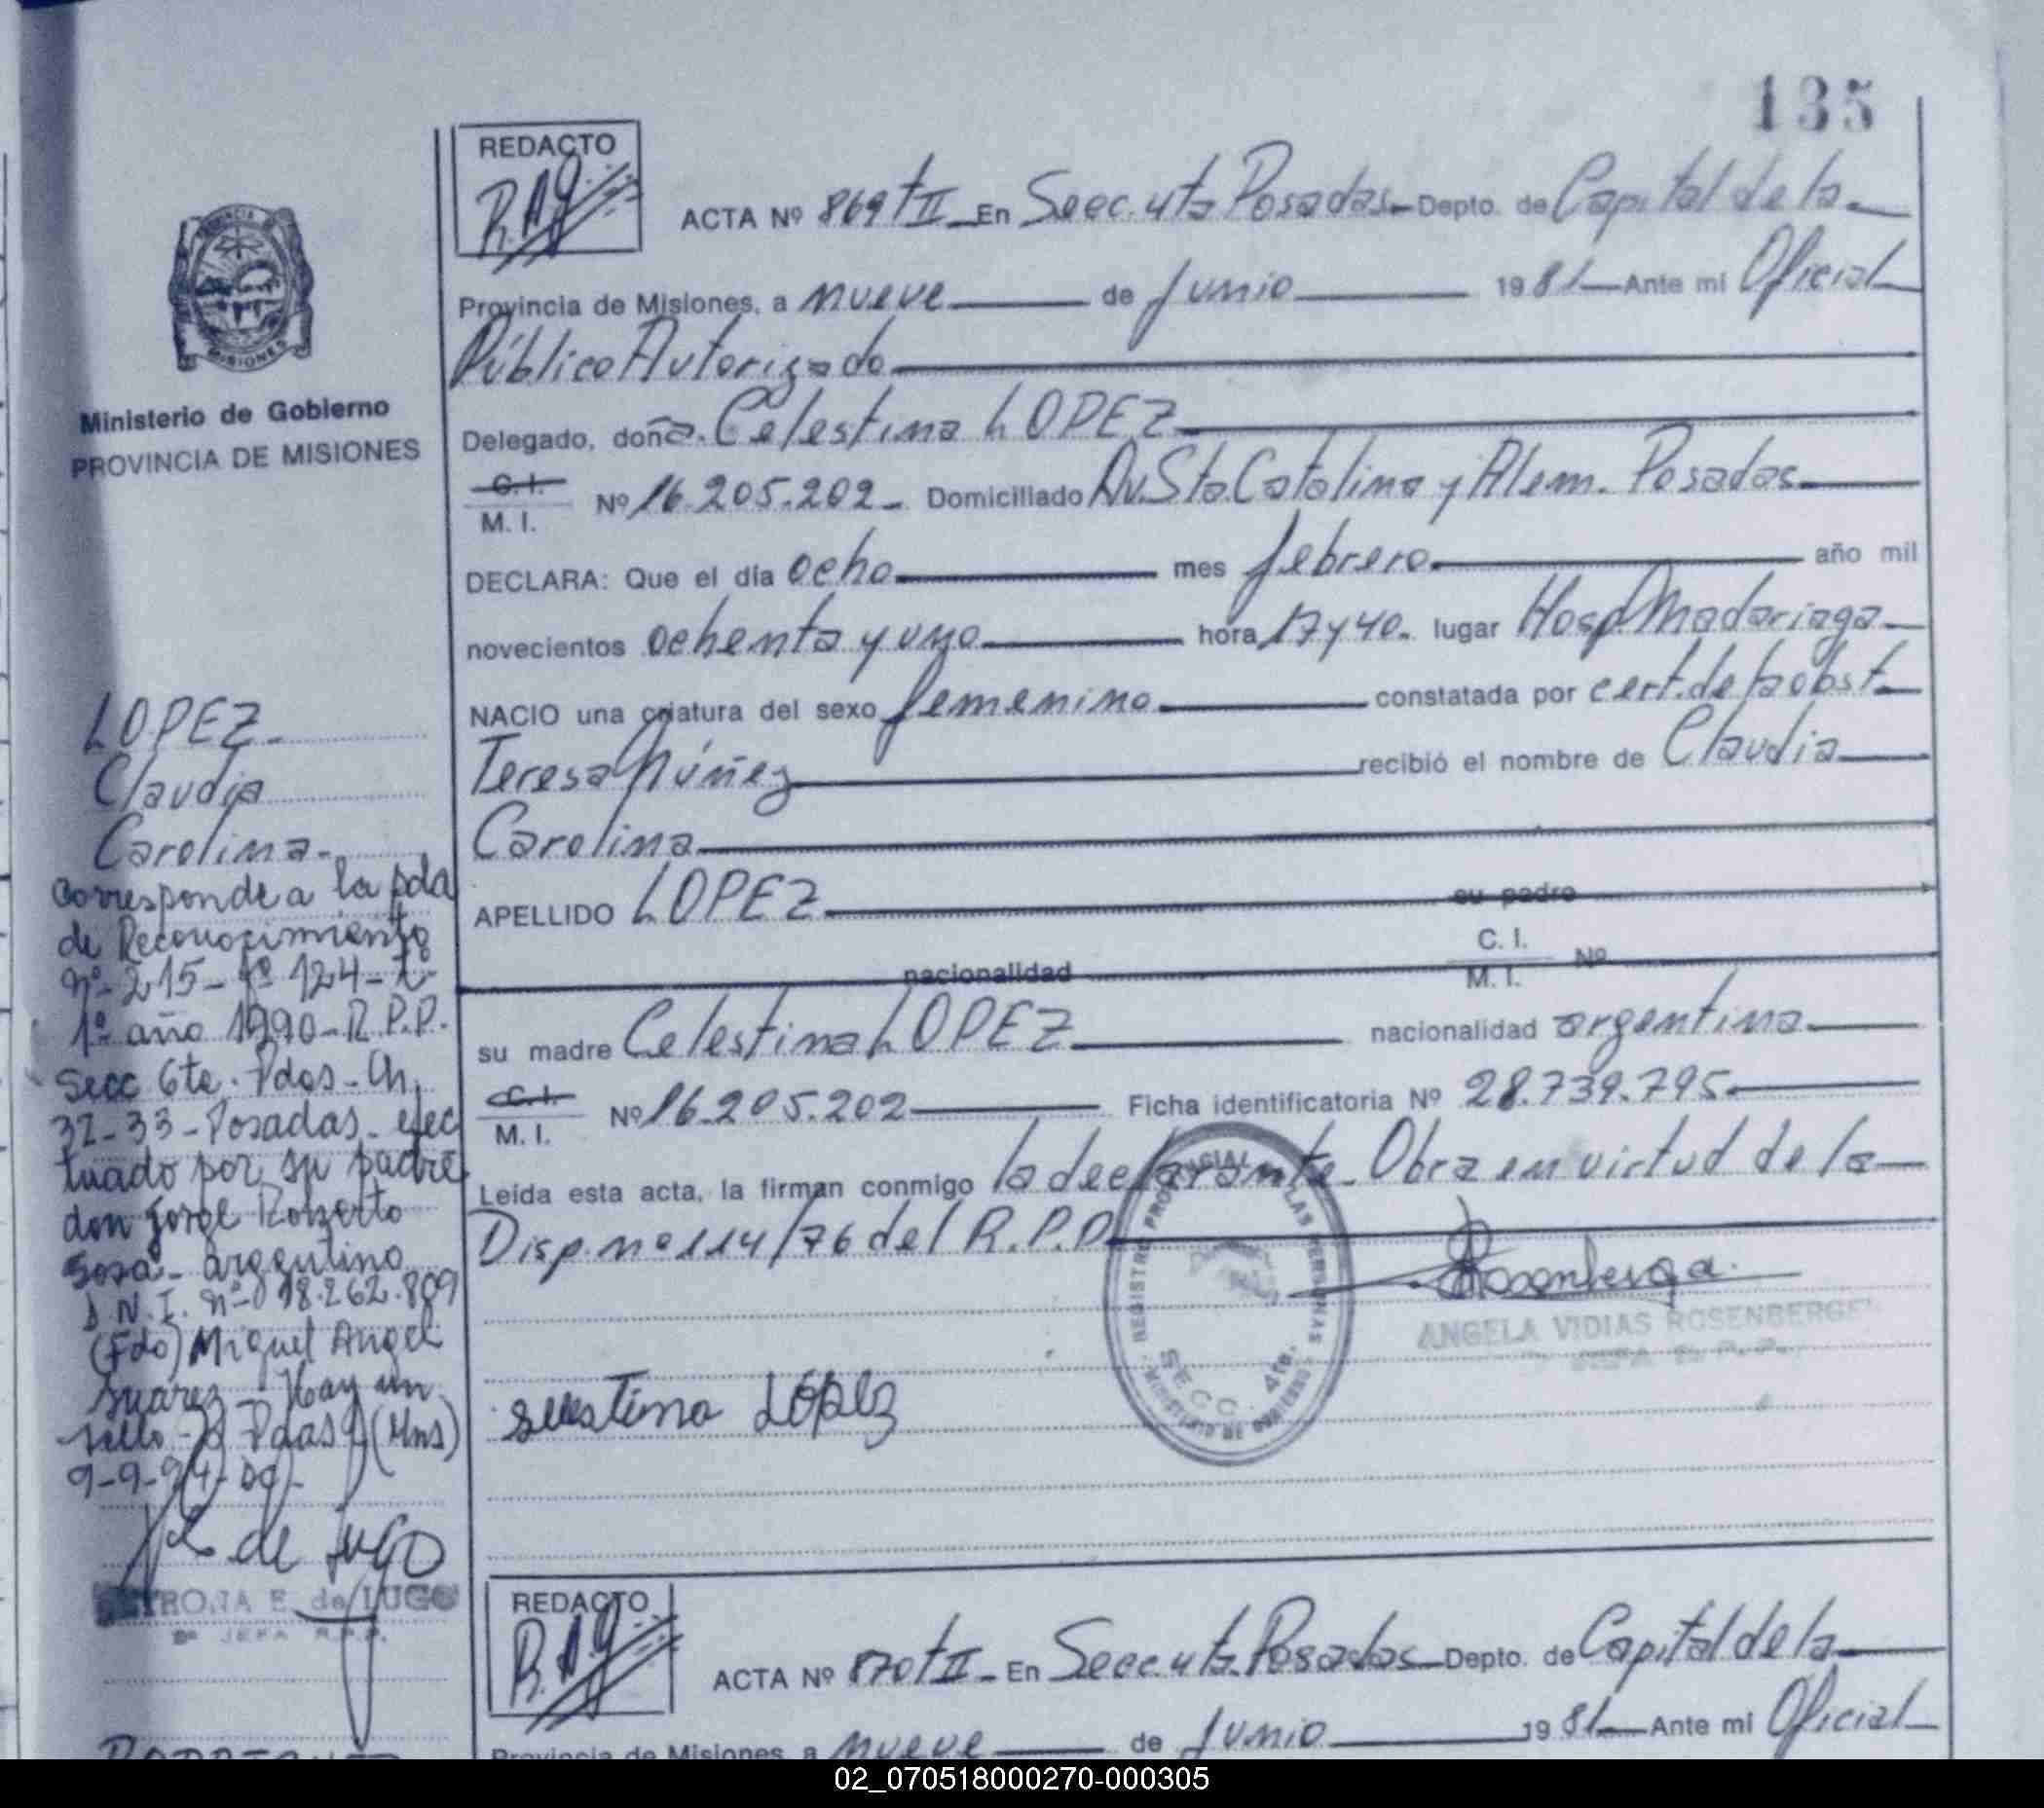 135
REDACTO
R.A.G.
ACTA Nº 869 tII En Secc. 4ta Posadas Depto. de Capital de la
Provincia de Misiones, a nueve de Junio 1981 Ante mí Oficial
Público Autorizado
Delegado, doña. Celestina LOPEZ
C.I.
M. I. Nº 16.205.202 Domiciliado Av. Sta. Catalina y Alem. Posadas
DECLARA: Que el día ocho mes febrero año mil
novecientos ochenta y uno hora 17 y 40. lugar Hosp. Madariaga
NACIO una criatura del sexo femenino constatada por cert. de la obst.
Teresa Núñez recibió el nombre de Claudia
Carolina
APELLIDO LOPEZ su padre
nacionalidad C. I. Nº
M. I.
su madre Celestina LOPEZ nacionalidad argentina
C.I.
M. I. Nº 16.205.202 Ficha identificatoria Nº 28.739.795
Leída esta acta, la firman conmigo la declarante. Obra en virtud de la
Disp. nº 114/76 del R.P.P.
Rosenberga.
ANGELA VIDIAS ROSENBERGE
JEFA R. P. P.
REGISTRO PROVINCIAL LAS PERSONAS
MINISTERIO DE GOBIERNO
SECC. 4ta.
López
PROVINCIA DE
MISIONES
Ministerio de Gobierno
PROVINCIA DE MISIONES
LOPEZ
Claudia
Carolina
Corresponde a la pda
de Reconocimiento
nº 215 - fº 124 - tº
1º año 1990 - R.P.P.
Secc 6ta. Pdas - Ch.
32-33 - Posadas - efec
tuado por su padre
don Jorge Roberto
Sosa - argentino
D.N.I. nº 18.262.809
(Fdo) Miguel Angel
Suarez - Hay un
sello - Pdas (Mns)
9-9-94-
de Lugo
TRONA E. de LUGO
2ª JEFA R.P.P.
REDACTO
R.A.G.
ACTA Nº 870 tII En Secc. 4ta. Posadas Depto. de Capital de la
Provincia de Misiones, a nueve de Junio 1981 Ante mí Oficial
02_070518000270-000305